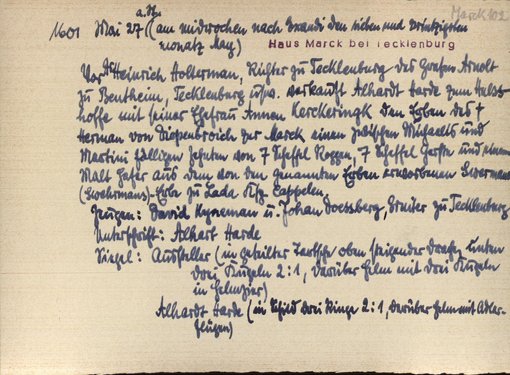 Marck 102
1601 Mai 27 (a. St.) (am midwochen nach Exaudi den sieben und zwintzigsten
monatz dag)
Haus Marck bei Tecklenburg
Vor Heinrich Holterman, Richter zu Tecklenburg des Grafen Arnolt
zu Bentheim, Tecklenburg usw. verkauft Alhardt Harde zum
hoffe mit seiner Ehefrau Annen Kerckeringk den Erben des †
Herman von Diepenbroich zur Marck einen zwischen Michaelis und
Martini fälligen Zehnten von 7 Scheffel Roggen, 7 Scheffel Gerste und einem
Malt Hafer aus dem von den genannten Erben erworbenen
Erbe zu Lada Ksp. Cappeln.
Zeugen: David Kyneman u. Johan Doessberg, zu Tecklenburg
Unterschrift: Alhart Harde
Siegel: Aussteller (in geteilter Tartsche oben steigender unten
drei Kugeln 2:1, darüber Helm mit drei Kugeln
in Helmzier)
Alhardt Harde (in Schild drei Ringe 2:1, darüber Helm mit Adler-
flügen)